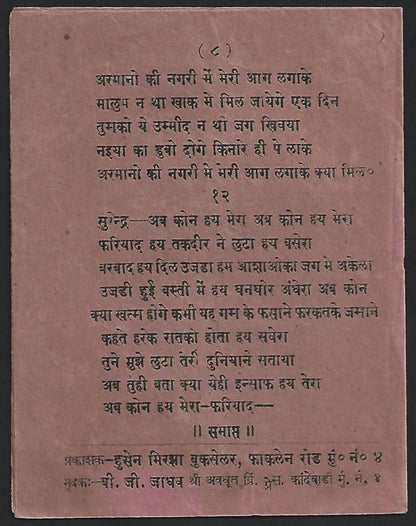 ( ८ )
अरमानो की नगरी में मेरी आग लगाके
मालुम न था खाक में मिल जायेगे एक दिन
तुमको ये उम्मीद न थी जग खिवया
नइया का डुबो दोगे किनारे ही पे लाके
अरमानो की नगरी में मेरी आग लगाके क्या मिल०
१२
सुरेन्द्र—अब कोन हय मेरा अब कोन हय मेरा
फरियाद हय तकदीर ने लुटा हय बसेरा
बरबाद हय दिल उजडा हम आशाओका जग मे अकेला
उजडी हुई बस्ती में हय घनघोर अंधेरा अब कोन
क्या खत्म होगे कभी यह गम के फसाने फरकतके जमाने
कहते हरेक रातको होता हय सवेरा
तुने मुझे लुटा तेरी दुनियाने सताया
अब तुंही बता क्या येही इन्साफ हय तेरा
अब कोन हय मेरा-फरियाद—
॥ समाप्त ॥
प्रकाशक—हुसेन मिरझा बुकसेलर, फाकलेन रोड मुं० नं० ४
मुद्रकः—बी. जी. जाधव श्री अवधूत प्रिं. प्रेस. कांदेवाडी मुं. नं. ४